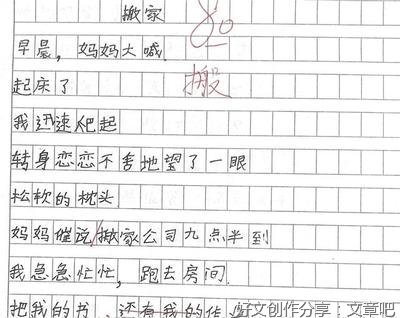 搬家
80
早晨，妈妈大喊.
搬
起床了
我迅速爬起
转身恋恋不舍地望了一眼
松软的枕头
妈妈催说搬家公司九点半到
我急急忙忙，跑去房间.
把我的书，还有我的作
好文创作分享：文章吧